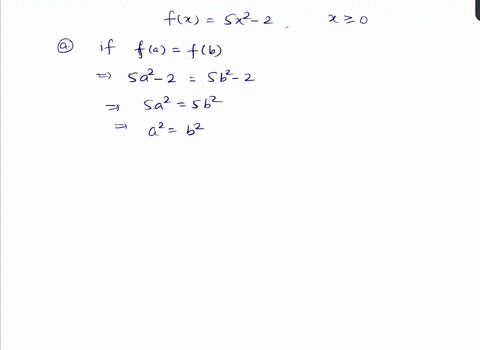 f(x) = 5x²-2, x ≥ 0
ⓐ if f(a) = f(b)
⇒ 5a²-2 = 5b²-2
⇒ 5a² = 5b²
⇒ a² = b²